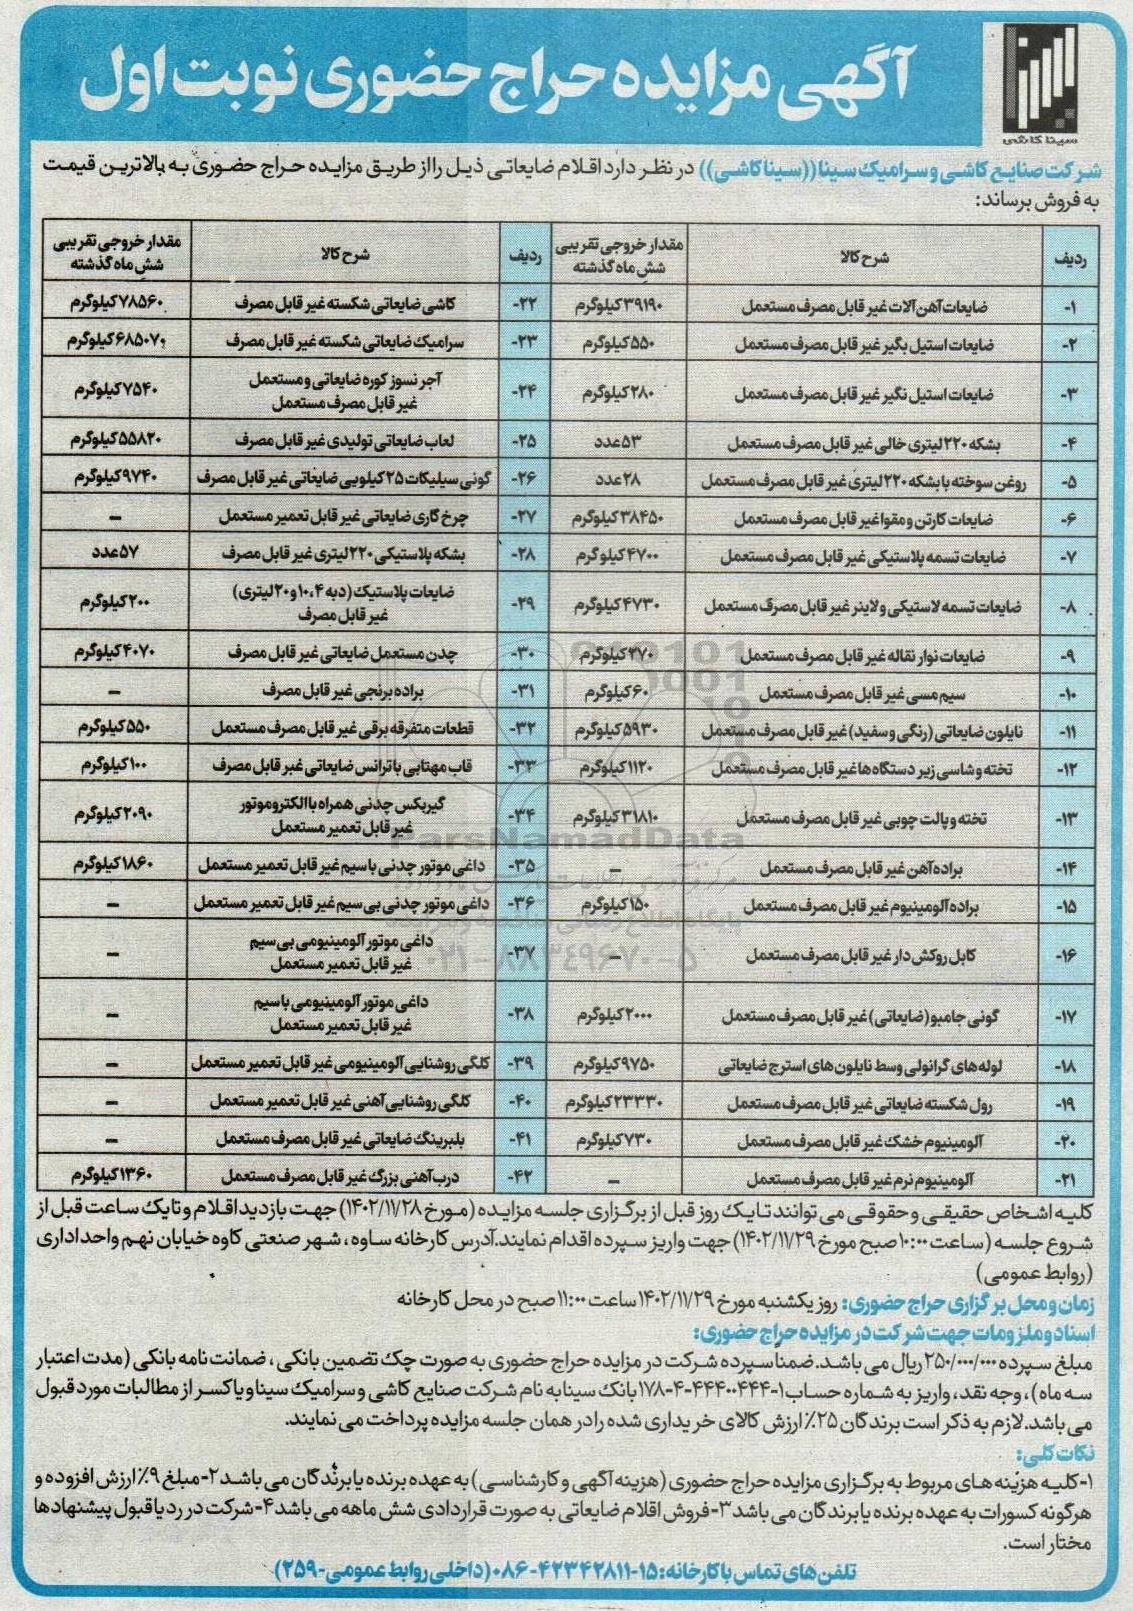 سینا کاشی
آگهی مزایده حراج حضوری نوبت اول
شرکت صنایع کاشی و سرامیک سینا ((سینا کاشی)) در نظر دارد اقلام ضایعاتی ذیل را از طریق مزایده حراج حضوری به بالاترین قیمت
به فروش برساند:
ردیف شرح کالا مقدار خروجی تقریبی شش ماه گذشته ردیف شرح کالا مقدار خروجی تقریبی شش ماه گذشته
۱- ضایعات آهن آلات غیر قابل مصرف مستعمل ۳۹۱۹۰ کیلوگرم ۲۲- کاشی ضایعاتی شکسته غیر قابل مصرف ۷۸۵۶۰ کیلوگرم
۲- ضایعات استیل بگیر غیر قابل مصرف مستعمل ۵۵۰ کیلوگرم ۲۳- سرامیک ضایعاتی شکسته غیر قابل مصرف ۶۸۵۰۷۰ کیلوگرم
۳- ضایعات استیل نگیر غیر قابل مصرف مستعمل ۲۸۰ کیلوگرم ۲۴- آجر نسوز کوره ضایعاتی و مستعمل غیر قابل مصرف مستعمل ۷۵۴۰ کیلوگرم
۴- بشکه ۲۲۰ لیتری خالی غیر قابل مصرف مستعمل ۵۳ عدد ۲۵- لعاب ضایعاتی تولیدی غیر قابل مصرف ۵۵۸۲۰ کیلوگرم
۵- روغن سوخته با بشکه ۲۲۰ لیتری غیر قابل مصرف مستعمل ۲۸ عدد ۲۶- گونی سیلیکات ۲۵ کیلویی ضایعاتی غیر قابل مصرف ۹۷۴۰ کیلوگرم
۶- ضایعات کارتن و مقوا غیر قابل مصرف مستعمل ۳۸۴۵۰ کیلوگرم ۲۷- چرخ گاری ضایعاتی غیر قابل تعمیر مستعمل –
۷- ضایعات تسمه پلاستیکی غیر قابل مصرف مستعمل ۴۷۰۰ کیلوگرم ۲۸- بشکه پلاستیکی ۲۲۰ لیتری غیر قابل مصرف ۵۷ عدد
۸- ضایعات تسمه لاستیکی و لاینر غیر قابل مصرف مستعمل ۴۷۳۰ کیلوگرم ۲۹- ضایعات پلاستیک (دبه ۴، ۱۰ و ۲۰ لیتری) غیر قابل مصرف ۲۰۰ کیلوگرم
۹- ضایعات نوار نقاله غیر قابل مصرف مستعمل ۲۷۰ کیلوگرم ۳۰- چدن مستعمل ضایعاتی غیر قابل مصرف ۴۰۷۰ کیلوگرم
۱۰- سیم مسی غیر قابل مصرف مستعمل ۶۰ کیلوگرم ۳۱- براده برنجی غیر قابل مصرف –
۱۱- نایلون ضایعاتی (رنگی و سفید) غیر قابل مصرف مستعمل ۵۹۳۰ کیلوگرم ۳۲- قطعات متفرقه برقی غیر قابل مصرف مستعمل ۵۵۰ کیلوگرم
۱۲- تخته و شاسی زیر دستگاه ها غیر قابل مصرف مستعمل ۱۱۲۰ کیلوگرم ۳۳- قاب مهتابی با ترانس ضایعاتی غیر قابل مصرف ۱۰۰ کیلوگرم
۱۳- تخته و پالت چوبی غیر قابل مصرف مستعمل ۳۱۸۱۰ کیلوگرم ۳۴- گیربکس چدنی همراه با الکتروموتور غیر قابل تعمیر مستعمل ۲۰۹۰ کیلوگرم
۱۴- براده آهن غیر قابل مصرف مستعمل – ۳۵- داغی موتور چدنی با سیم غیر قابل تعمیر مستعمل ۱۸۶۰ کیلوگرم
۱۵- براده آلومینیوم غیر قابل مصرف مستعمل ۱۵۰ کیلوگرم ۳۶- داغی موتور چدنی بی سیم غیر قابل تعمیر مستعمل –
۱۶- کابل روکش دار غیر قابل مصرف مستعمل – ۳۷- داغی موتور آلومینیومی بی سیم غیر قابل تعمیر مستعمل –
۱۷- گونی جامبو (ضایعاتی) غیر قابل مصرف مستعمل ۲۰۰۰ کیلوگرم ۳۸- داغی موتور آلومینیومی با سیم غیر قابل تعمیر مستعمل –
۱۸- لوله های گرانولی وسط نایلون های استرچ ضایعاتی ۹۷۵۰ کیلوگرم ۳۹- کلگی روشنایی آلومینیومی غیر قابل تعمیر مستعمل –
۱۹- رول شکسته ضایعاتی غیر قابل مصرف مستعمل ۲۳۳۳۰ کیلوگرم ۴۰- کلگی روشنایی آهنی غیر قابل تعمیر مستعمل –
۲۰- آلومینیوم خشک غیر قابل مصرف مستعمل ۷۳۰ کیلوگرم ۴۱- بلبرینگ ضایعاتی غیر قابل مصرف مستعمل –
۲۱- آلومینیوم نرم غیر قابل مصرف مستعمل – ۴۲- درب آهنی بزرگ غیر قابل مصرف مستعمل ۱۳۶۰ کیلوگرم
ParsNamadData
۰۲۱-۸۸۳۴۹۶۷۰-۵
کلیه اشخاص حقیقی و حقوقی می توانند تا یک روز قبل از برگزاری جلسه مزایده (مورخ ۱۴۰۲/۱۱/۲۸) جهت بازدید اقلام و تا یک ساعت قبل از
شروع جلسه (ساعت ۱۰:۰۰ صبح مورخ ۱۴۰۲/۱۱/۲۹) جهت واریز سپرده اقدام نمایند. آدرس کارخانه ساوه، شهر صنعتی کاوه خیابان نهم واحد اداری
(روابط عمومی)
زمان و محل برگزاری حراج حضوری: روز یکشنبه مورخ ۱۴۰۲/۱۱/۲۹ ساعت ۱۱:۰۰ صبح در محل کارخانه
اسناد و ملزومات جهت شرکت در مزایده حراج حضوری:
مبلغ سپرده ۲۵۰/۰۰۰/۰۰۰ ریال می باشد. ضمنا سپرده شرکت در مزایده حراج حضوری به صورت چک تضمین بانکی، ضمانت نامه بانکی (مدت اعتبار
سه ماه)، وجه نقد، واریز به شماره حساب ۱-۴۴۴۰۰۴۴۴-۴-۱۷۸ بانک سینا به نام شرکت صنایع کاشی و سرامیک سینا و یا کسر از مطالبات مورد قبول
می باشد. لازم به ذکر است برندگان ۲۵٪ ارزش کالای خریداری شده را در همان جلسه مزایده پرداخت می نمایند.
نکات کلی:
۱-کلیه هزینه های مربوط به برگزاری مزایده حراج حضوری (هزینه آگهی و کارشناسی) به عهده برنده یا برندگان می باشد ۲-مبلغ ۹٪ ارزش افزوده و
هرگونه کسورات به عهده برنده یا برندگان می باشد ۳-فروش اقلام ضایعاتی به صورت قراردادی شش ماهه می باشد ۴-شرکت در رد یا قبول پیشنهادها
مختار است.
تلفن های تماس با کارخانه: ۱۵-۴۲۳۴۲۸۱۱-۰۸۶ (داخلی روابط عمومی-۲۵۹)